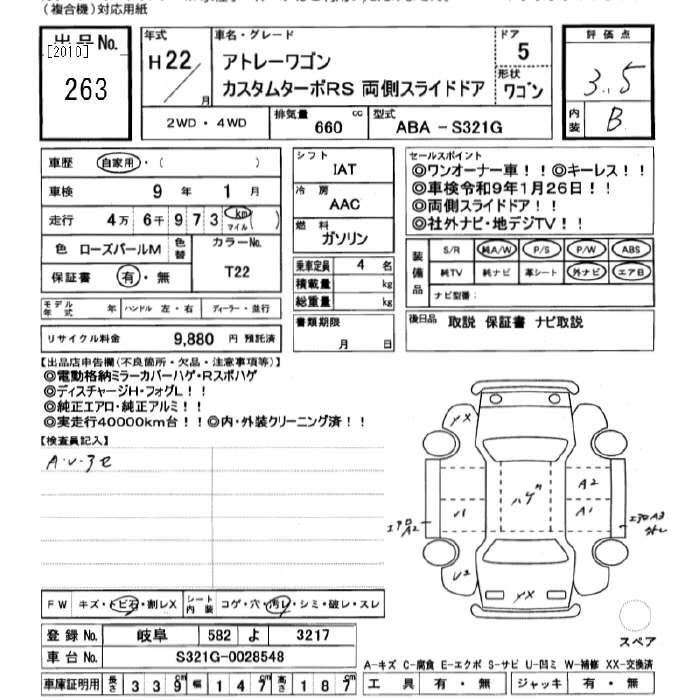 (複合機)対応用紙
出品No.
[2010]
263
年式
H22/
月
車名・グレード
アトレーワゴン
カスタムターボRS 両側スライドドア
ドア
5
形状
ワゴン
評価点
3.5
内装
B
2WD・4WD
排気量
660
cc
型式
ABA-S321G
車歴
自家用・( )
車検
9 年 1 月
走行
4万 6千 9 7 3 km マイル( )
色 ローズパールM
色替
カラーNo.
T22
保証書 有・無
モデル年式 年
ハンドル 左・右
ディーラー・並行
リサイクル料金 9,880 円 預託済
シフト
IAT
冷房
AAC
燃料
ガソリン
乗車定員 4 名
積載量 kg
総重量 kg
書類期限
月 日
セールスポイント
◎ワンオーナー車!!◎キーレス!!
◎車検令和9年1月26日!!
◎両側スライドドア!!
◎社外ナビ・地デジTV!!
装備品
S/R 純A/W P/S P/W ABS
純TV 純ナビ 革シート 外ナビ エアB
ナビ型番:
後日品 取説 保証書 ナビ取説
【出品店申告欄(不良箇所・欠品・注意事項等)】
◎電動格納ミラーカバーハゲ・Rスポハゲ
◎ディスチャージH・フォグL!!
◎純正エアロ・純正アルミ!!
◎実走行40000km台!!◎内・外装クリーニング済!!
【検査員記入】
A・U・3セ
XX
ハゲ
A2
A1
U1
エアロA2
エアロA3
U2
XX
スペア
FW キズ・トビ石・割レX
シート内装 コゲ・穴・汚レ・シミ・破レ・スレ
登録No. 岐阜 582 よ 3217
車台No. S321G-0028548
車庫証明用 長さ 3 3 9 cm 幅 1 4 7 cm 高さ 1 8 7 cm
A-キズ C-腐食 E-エクボ S-サビ U-凹ミ W-補修 XX-交換済
工具 有・無 ジャッキ 有・無